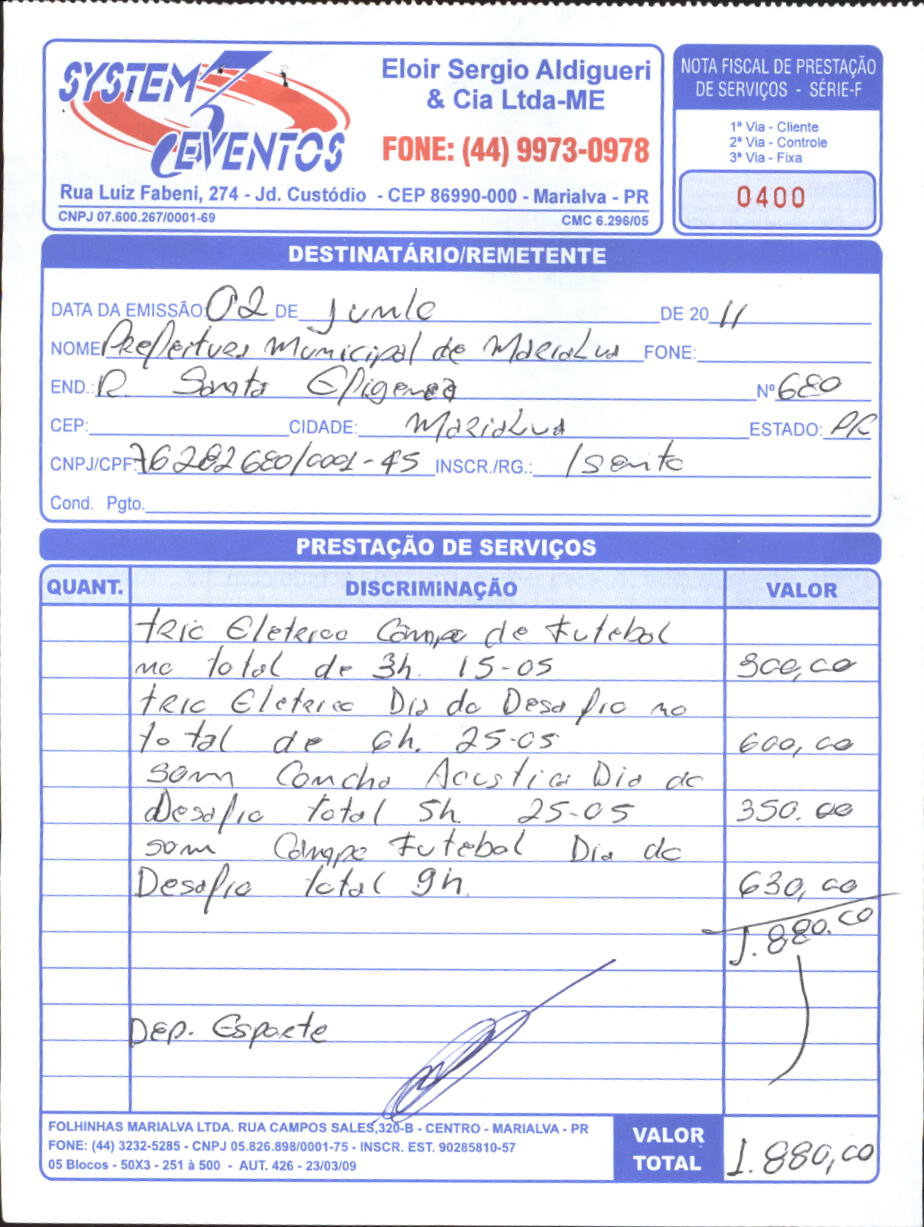 SYSTEM 3 EVENTOS
Eloir Sergio Aldigueri
& Cia Ltda-ME
FONE: (44) 9973-0978
Rua Luiz Fabeni, 274 - Jd. Custódio - CEP 86990-000 - Marialva - PR
CNPJ 07.600.267/0001-69 CMC 6.296/05
NOTA FISCAL DE PRESTAÇÃO
DE SERVIÇOS - SÉRIE-F
1ª Via - Cliente
2ª Via - Controle
3ª Via - Fixa
0400
DESTINATÁRIO/REMETENTE
DATA DA EMISSÃO: 02 DE Junho DE 20 11
NOME Prefeitura Municipal de Marialva FONE:
END.: R. Santa Efigenea Nº 680
CEP: CIDADE: Marialva ESTADO: PR
CNPJ/CPF: 76282680/0001-45 INSCR./RG.: Isento
Cond. Pgto.
PRESTAÇÃO DE SERVIÇOS
QUANT. DISCRIMINAÇÃO VALOR
tric Eletrico Campo de Futebol
no total de 3h. 15-05 300,00
tric Eletrico Dia do Desafio no
total de 6h. 25-05 600,00
som Concha Acustica Dia do
Desafio total 5h 25-05 350.00
som Campo Futebol Dia do
Desafio total 9h. 630,00
1.880.00
Dep. Esporte
FOLHINHAS MARIALVA LTDA. RUA CAMPOS SALES, 320-B - CENTRO - MARIALVA - PR
FONE: (44) 3232-5285 - CNPJ 05.826.898/0001-75 - INSCR. EST. 90285810-57
05 Blocos - 50X3 - 251 à 500 - AUT. 426 - 23/03/09
VALOR TOTAL 1.880,00